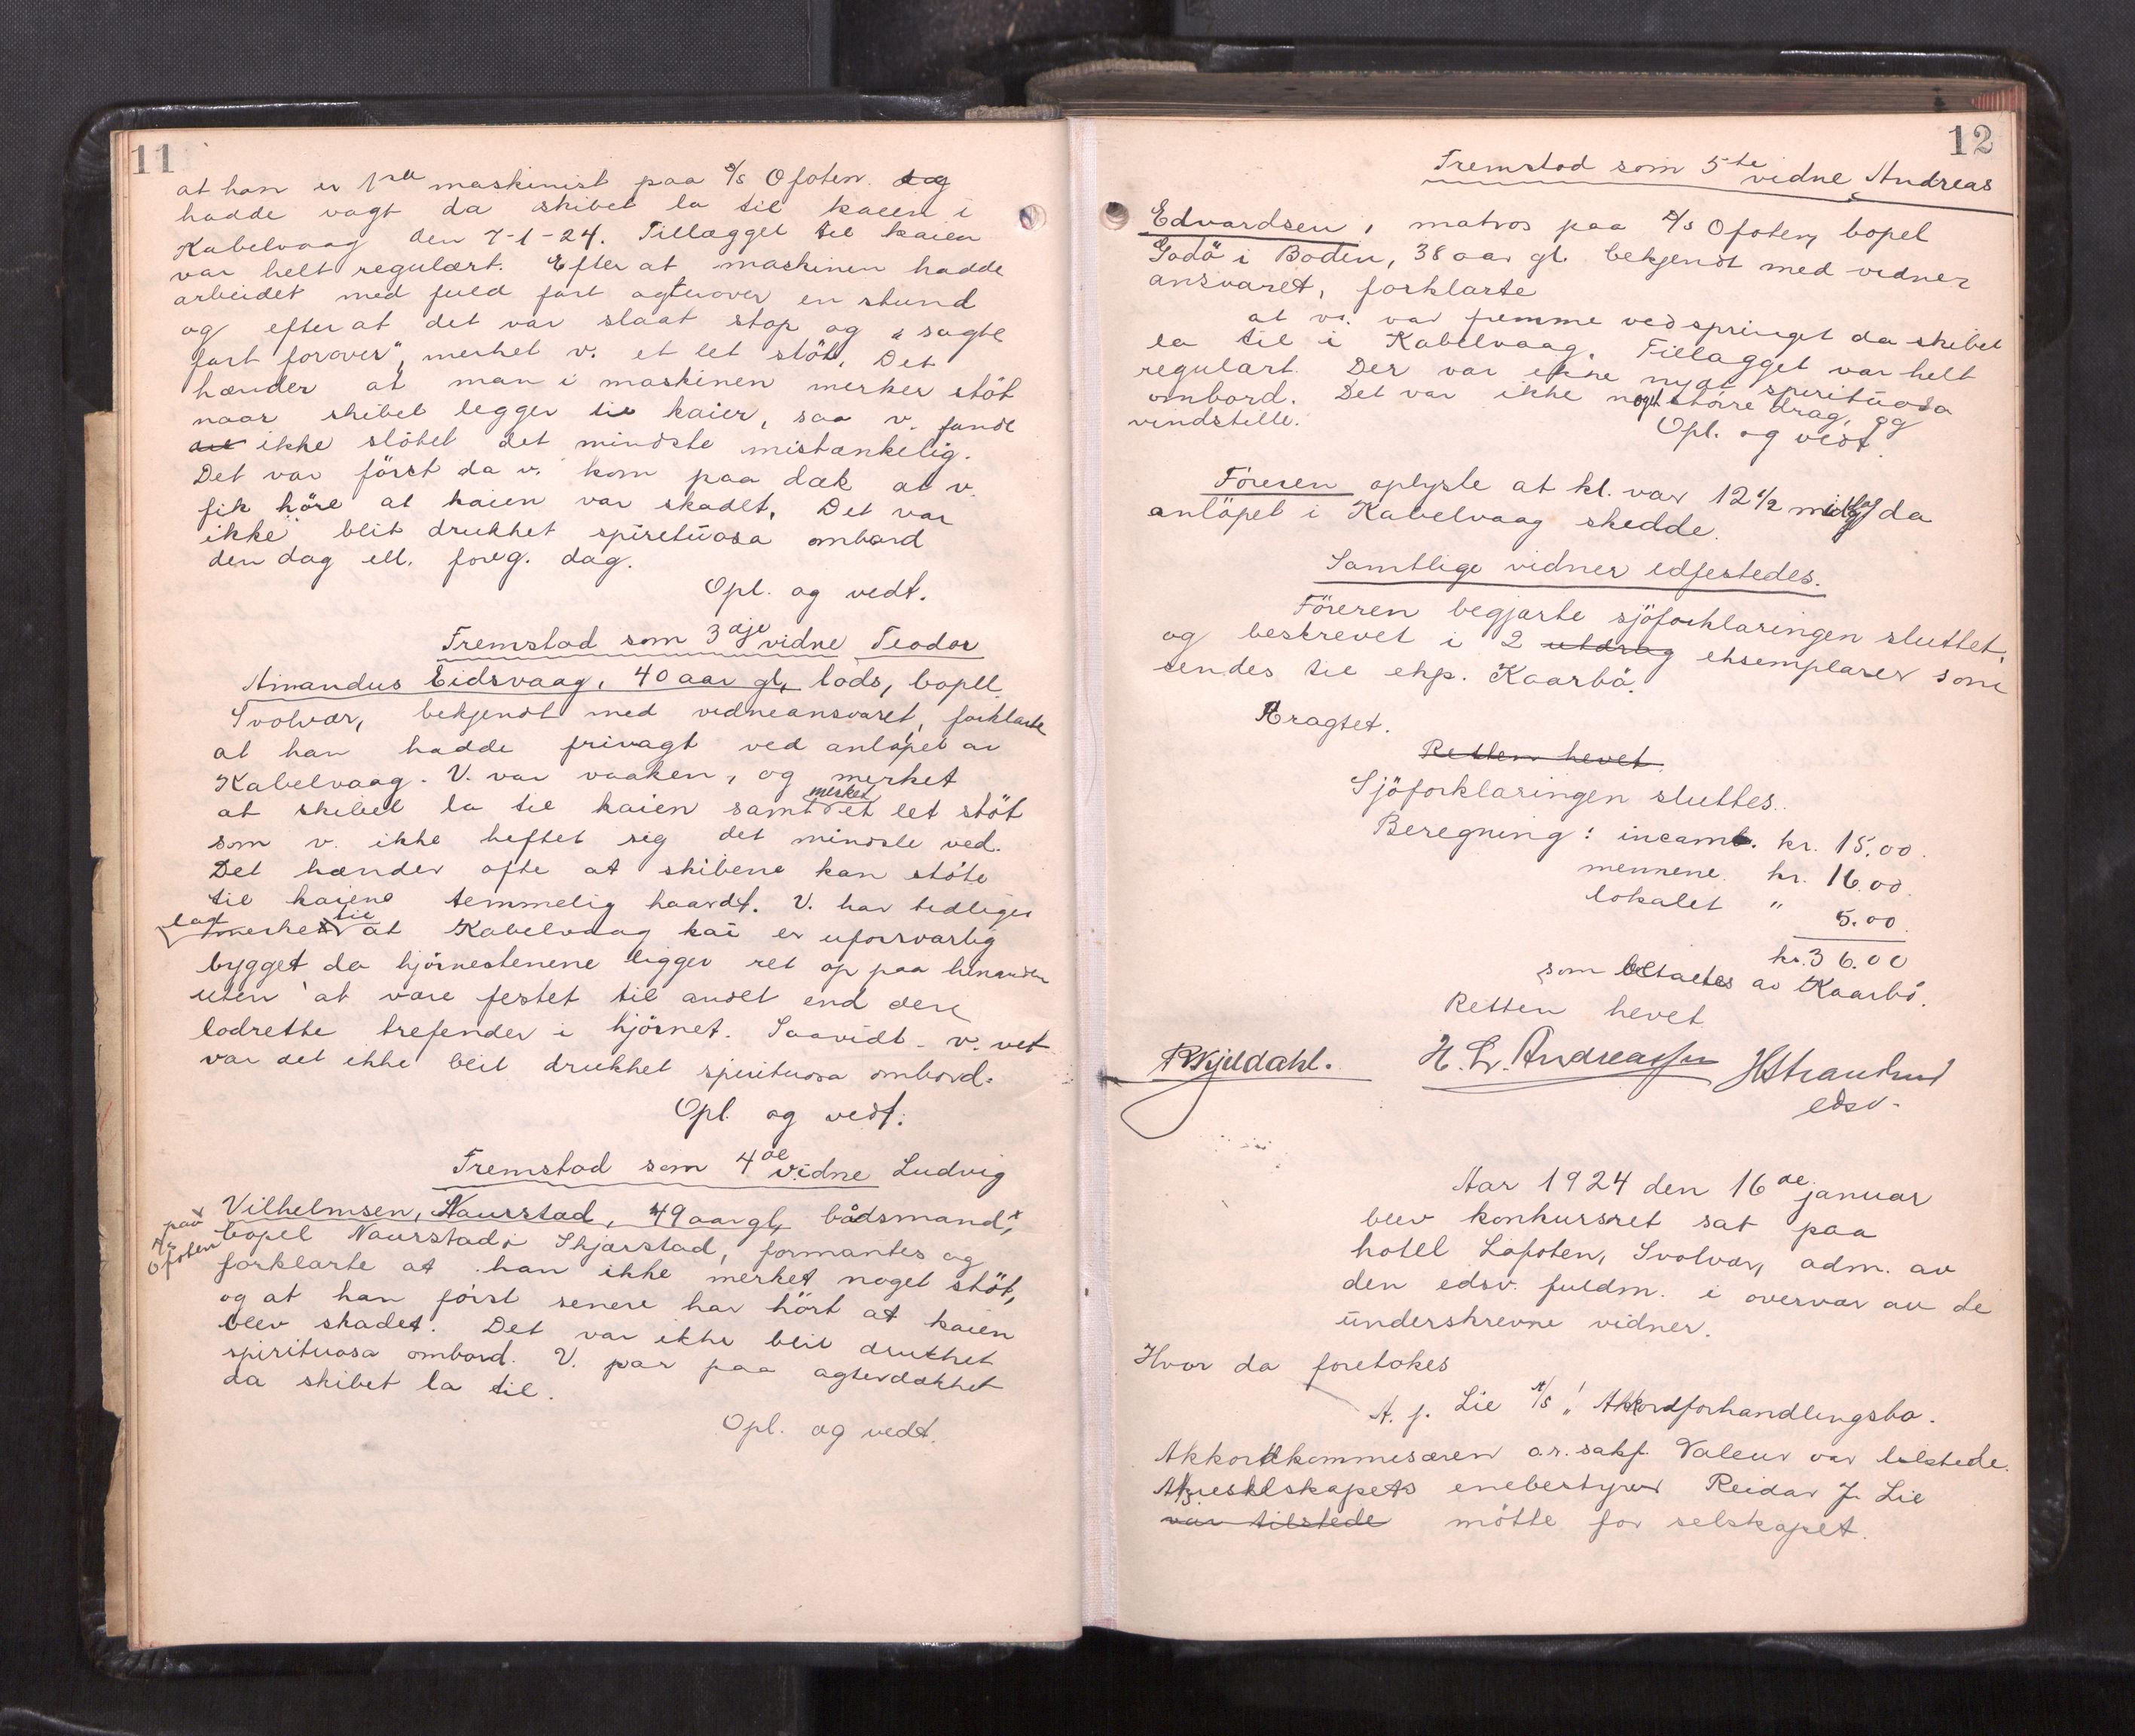 11
at han er 1ste maskinist paa s/s Ofoten. og
hadde vagt da skibet la til kaien i
Kabelvaag den 7-1-24. Tillægget til kaien
var helt regulært. Efter at maskinen hadde
arbeidet med fuld fart agterover en stund
og efter at det var slaat stop og "sagte
fart forover", merket v. et let stöt. Det
hænder at man i maskinen merker stöt
naar skibet legger til kaier, saa v. fandt
ikke stötet det mindste mistænkelig.
Det var först da v. kom paa dæk at v.
fik höre at kaien var skadet. Det var
ikke blit drukket spirituosa ombord
den dag ell. foreg. dag.
Opl. og vedt.
Fremstod som 3dje vidne Teodor
Amandus Eidsvaag, 40 aar gl, lods, bopel
Svolvær, bekjendt med vidneansvaret, forklarte
at han hadde frivagt ved anlöpet av
Kabelvaag. V. var vaaken, og merket
at skibet la til kaien samt merket et let stöt
som v. ikke heftet sig det mindste ved.
Det hænder ofte at skibene kan stöte
til kaiene temmelig haardt. V. har tidligere
lagt merke til at Kabelvaag kai er uforsvarlig
bygget da hjörnestenene ligger ret op paa hinanden
uten at være festet til andet end den
lodrette trefender i hjörnet. Saavidt v. vet
var det ikke blit drukket spirituosa ombord.
Opl. og vedt.
Fremstod som 4de vidne Ludvig
Vilhelmsen, Naurstad, 49 aar gl, bådsmand x,
x paa s/s Ofoten
bopel Naurstad i Skjærstad, formantes og
forklarte at han ikke merket noget stöt,
og at han först senere har hört at kaien
blev skadet. Det var ikke blit drukket
spirituosa ombord. V. var paa agterdækket
da skibet la til.
Opl. og vedt.
12
Fremstod som 5te vidne Andreas
Edvardsen, matros paa s/s Ofoten, bopel
Godö i Bodin, 38 aar gl. bekjendt med vidne-
ansvaret, forklarte
at v. var fremme ved springet da skibet
la til i Kabelvaag. Tillægget var helt
regulært. Der var ikke nydt spirituosa
ombord. Det var ikke noget större drag, og
vindstille.
Opl. og vedt.
Föreren oplyste at kl. var 12 1/2 middag da
anlöpet i Kabelvaag skedde.
Samtlige vidner edfestedes.
Föreren begjærte sjöforklaringen sluttet,
og beskrevet i 2 utdrag eksemplarer som
sendes til eksp. Kaarbö.
Eragtet.
Retten hevet.
Sjöforklaringen sluttes.
Beregning: incamb. kr. 15.00.
mennene. kr. 16.00.
lokalet " 5.00.
kr. 36.00
som betaltes av Kaarbö.
Retten hevet
R Kjeldahl. H. L. Andreassen H Strandrud
edsv.
Aar 1924 den 16de januar
blev konkursret sat paa
hotel Lofoten, Svolvær, adm. av
den edsv. fuldm. i overvær av de
underskrevne vidner.
Hvor da foretokes
A. J. Lie A/S' Akkordforhandlingsbo.
Akkordkommisæren o.r. sakf. Valeur var tilstede.
Aktieselskapets enebestyrer Reidar J. Lie
var tilstede mötte for selskapet.